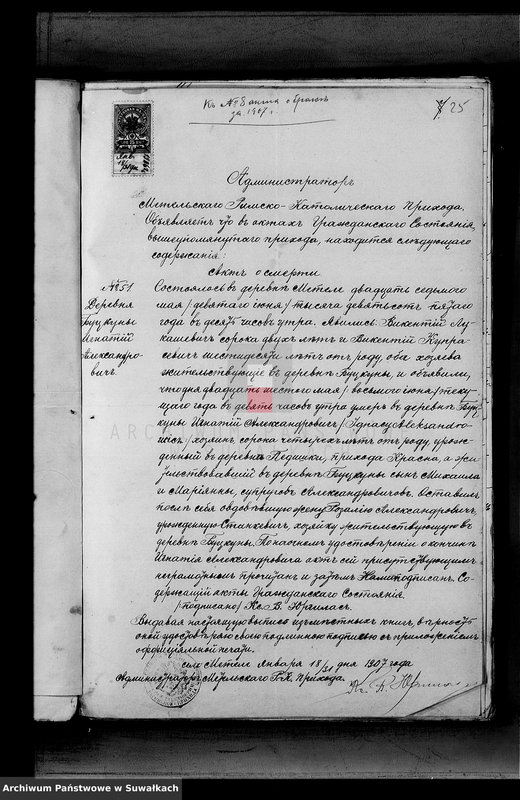 Къ № 8 акта о бракѣ
за 1907 г.
25
Администраторъ
Метельскаго Римско-Католическаго Прихода.
Объявляетъ что въ актахъ Гражданскаго Состоянія,
вышеупомянутаго прихода, находится слѣдующаго
содержанія:
Актъ о смерти
№51
Деревня
Буцкуны
Игнатій
Александро-
вичъ.
Состоялось въ деревнѣ Метеле двадцать седьмого
мая /девятаго іюня/ тысяча девятьсотъ пятаго
года въ десять часовъ утра. Явились Викентій Лу-
кашевичъ сорока двухъ лѣтъ и Викентій Купра-
севичъ шестидесяти лѣтъ отъ роду, оба хозяева
жительствующіе въ деревнѣ Буцкуны, и объявили,
что дня двадцать шестого мая /восьмого іюня/ теку-
щаго года въ девять часовъ утра умеръ въ деревнѣ Буц-
куны Игнатій Александровичъ /Ignacy Aleksandro-
wicz/ хозяинъ, сорока четырехъ лѣтъ отъ роду, урож-
денный въ деревнѣ Педишки, прихода Красна, а жи-
тельствовавшій въ деревнѣ Буцкуны сынъ Михаила
и Маріянны, супруговъ Александровичовъ. Оставилъ
послѣ себя овдовѣвшую жену Розалію Александровичъ,
урожденную Станкевичъ, хозяйку жительствующую въ
деревнѣ Буцкуны. По наочномъ удостовѣреніи о кончинѣ
Игнатія Александровича актъ сей присутствующимъ
неграмотнымъ прочитанъ и затѣмъ Нами подписанъ. Со-
держащій акты Гражданскаго Состоянія.
/подписано/ Кс. В.
Выдавая настоящую выпись изъ мѣстныхъ книгъ, вѣрность
оной удостовѣряю своею подлинною подписью съ приложеніемъ
оффиціальной печати.
село Метеле Января 18/31 дня 1907 года
Администраторъ Метельскаго Р.К. Прихода. Кс. В.
Archiwum Państwowe w Suwałkach